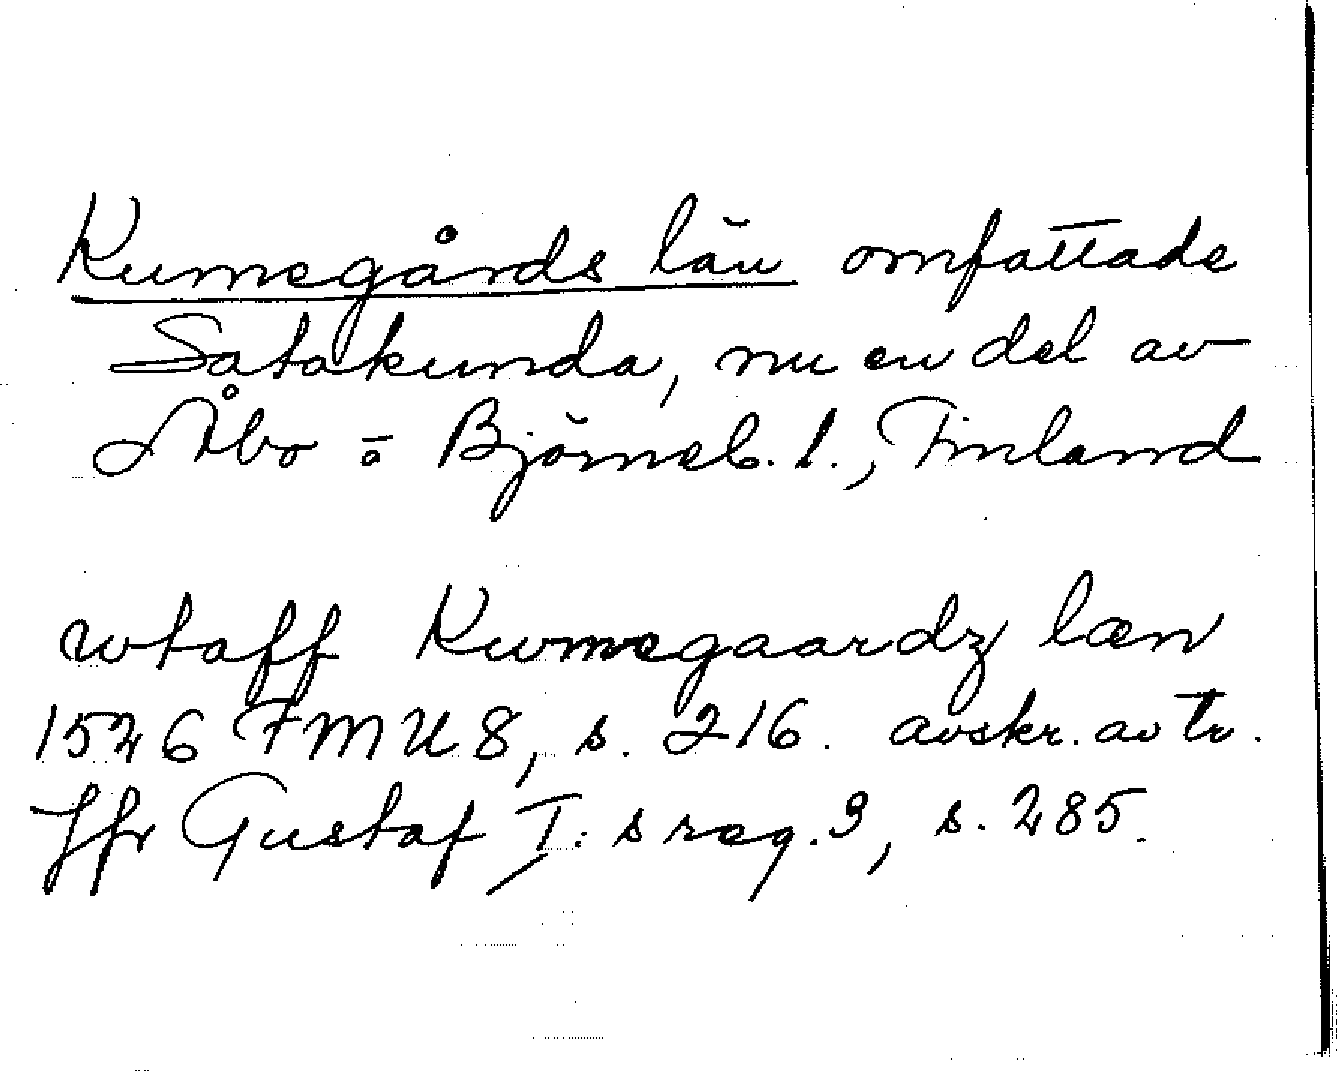 Kumegårds län omfattade
Satakunda, nu en del av
Åbo o Björneb. l., Finland
wtaff Kwmegaardz læn
1526 FMU 8, s. 216. avskr. av tr.
Jfr Gustaf I:s reg. 3, s. 285.